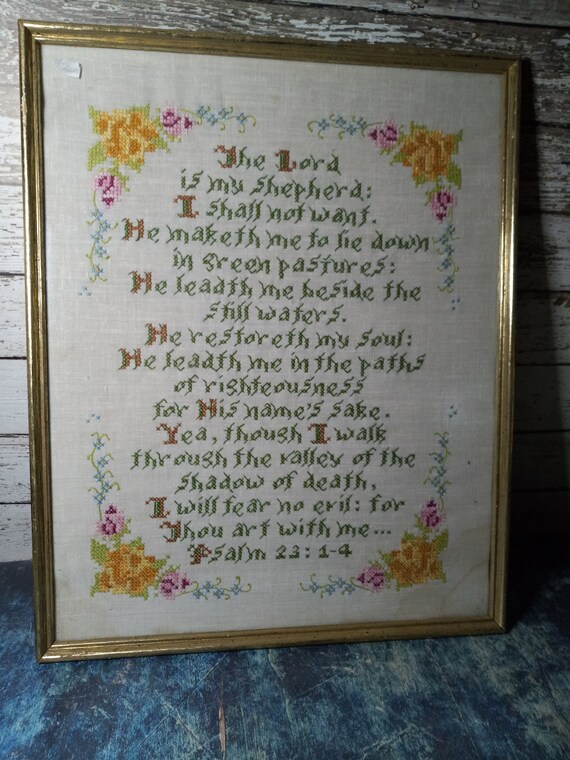 The Lord
is my shepherd:
I shall not want.
He maketh me to lie down
in green pastures:
He leadth me beside the
still waters.
He restoreth my soul:
He leadth me in the paths
of righteousness
for His name's sake.
Yea, though I walk
through the valley of the
shadow of death,
I will fear no evil: for
Thou art with me...
Psalm 23:1-4